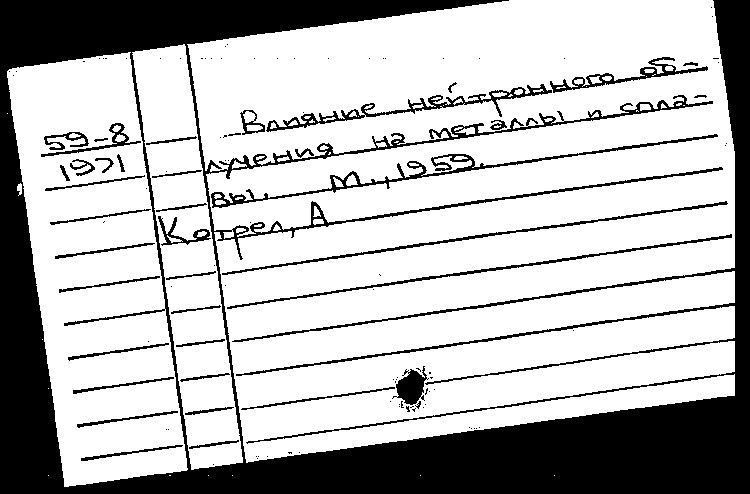 59-8
1971
Влияние нейтронного об-
лучения на металлы и спла-
вы. М., 1959.
Котрел, А